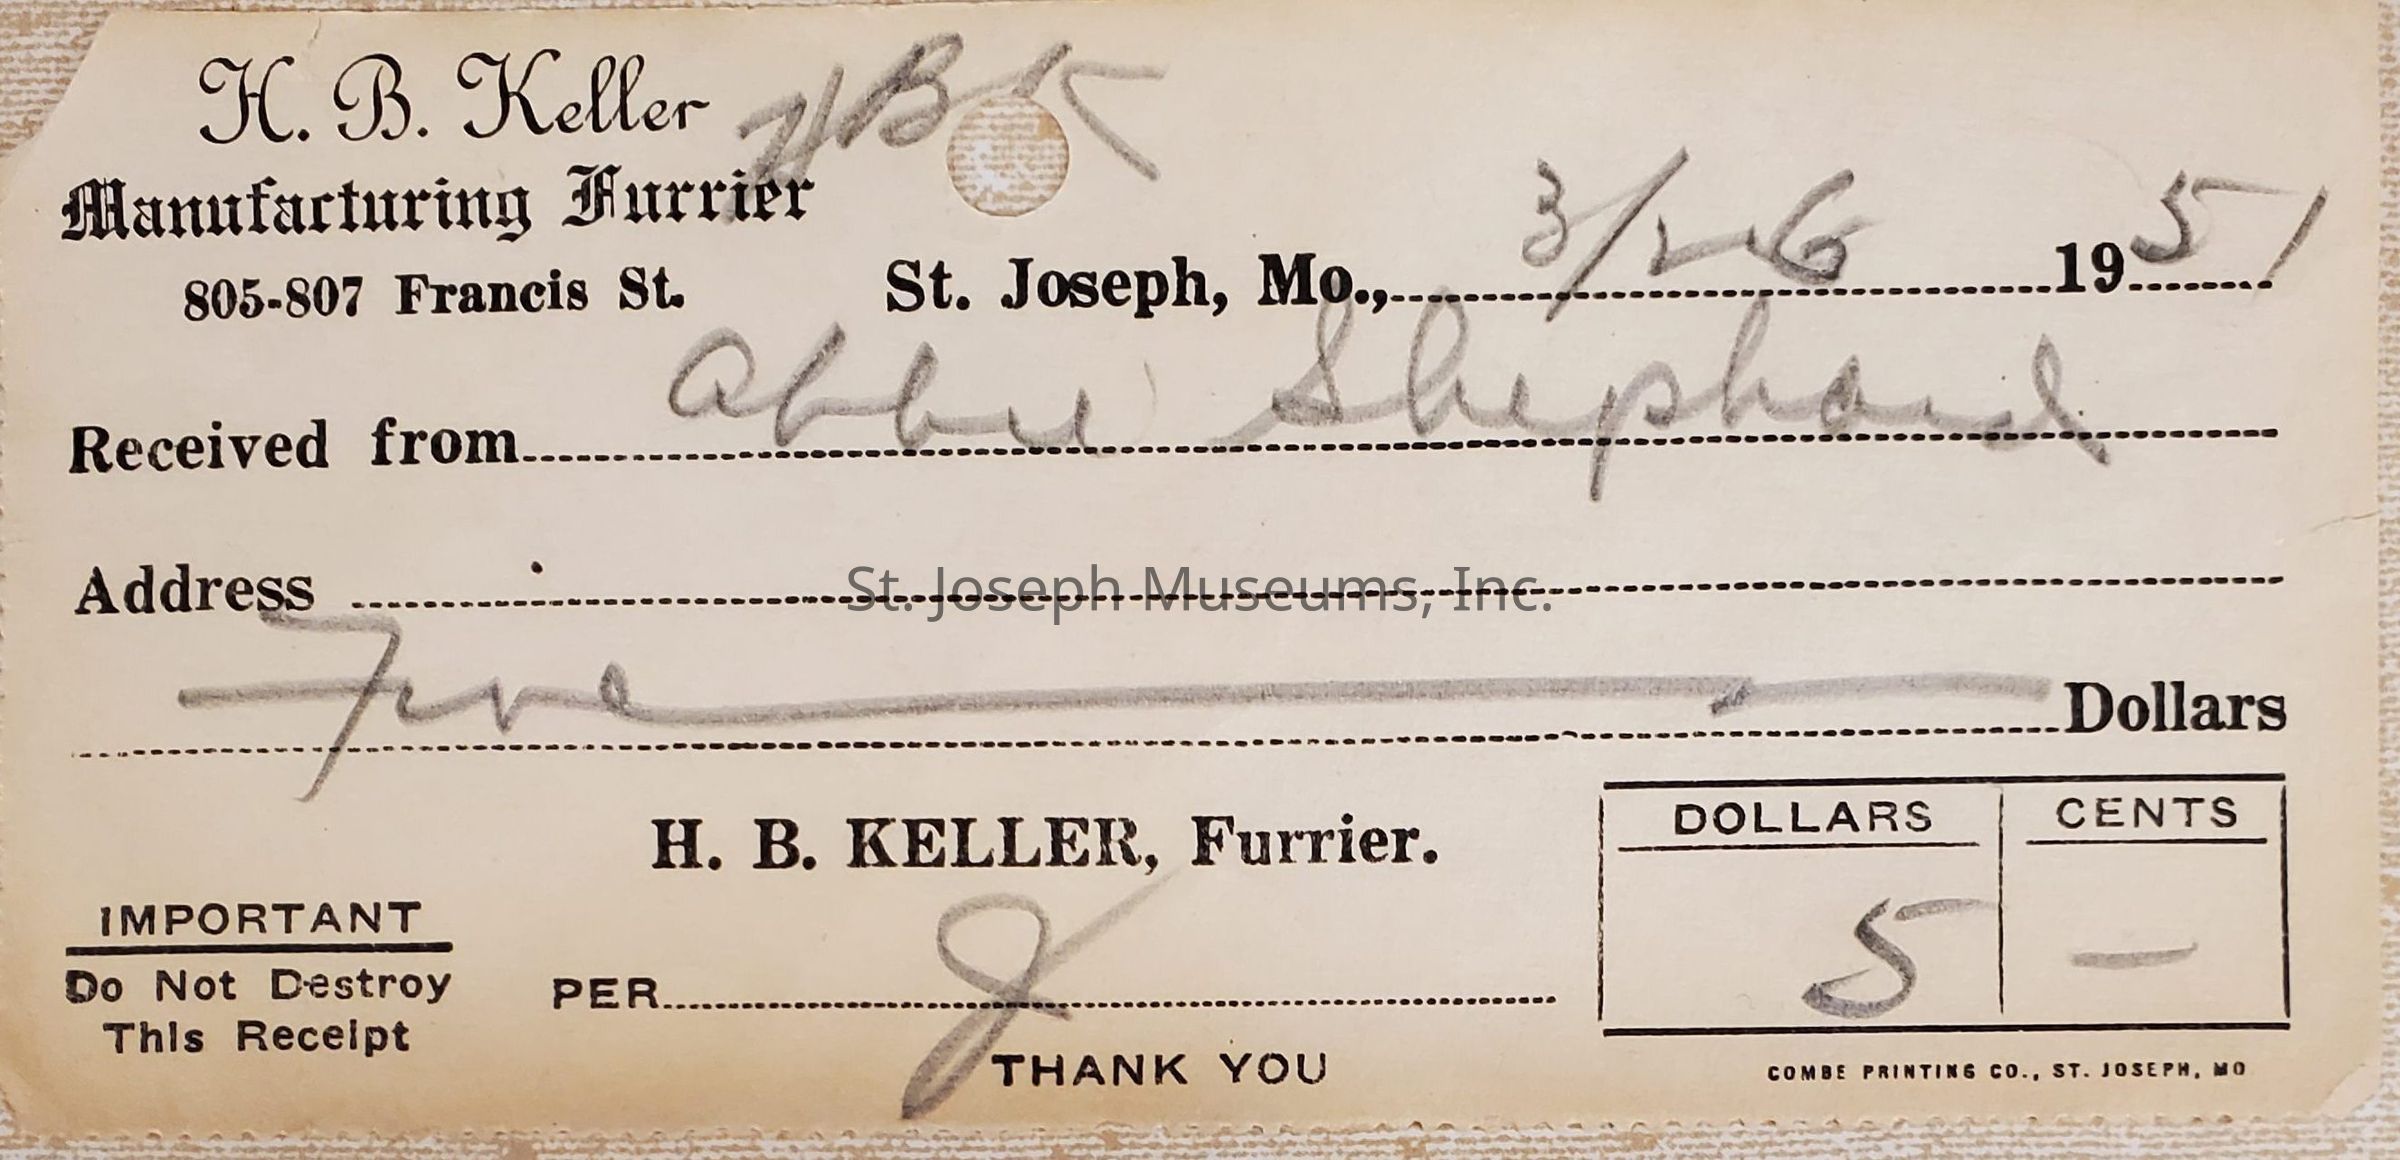 H. B. Keller HBK
Manufacturing Furrier
805-807 Francis St. St. Joseph, Mo., 3/26 1951
Received from Abbie Shephard
Address
St. Joseph Museums, Inc.
Five Dollars
H. B. KELLER, Furrier.
DOLLARS CENTS
5 —
IMPORTANT
Do Not Destroy
This Receipt
PER J
THANK YOU
COMBE PRINTING CO., ST. JOSEPH, MO